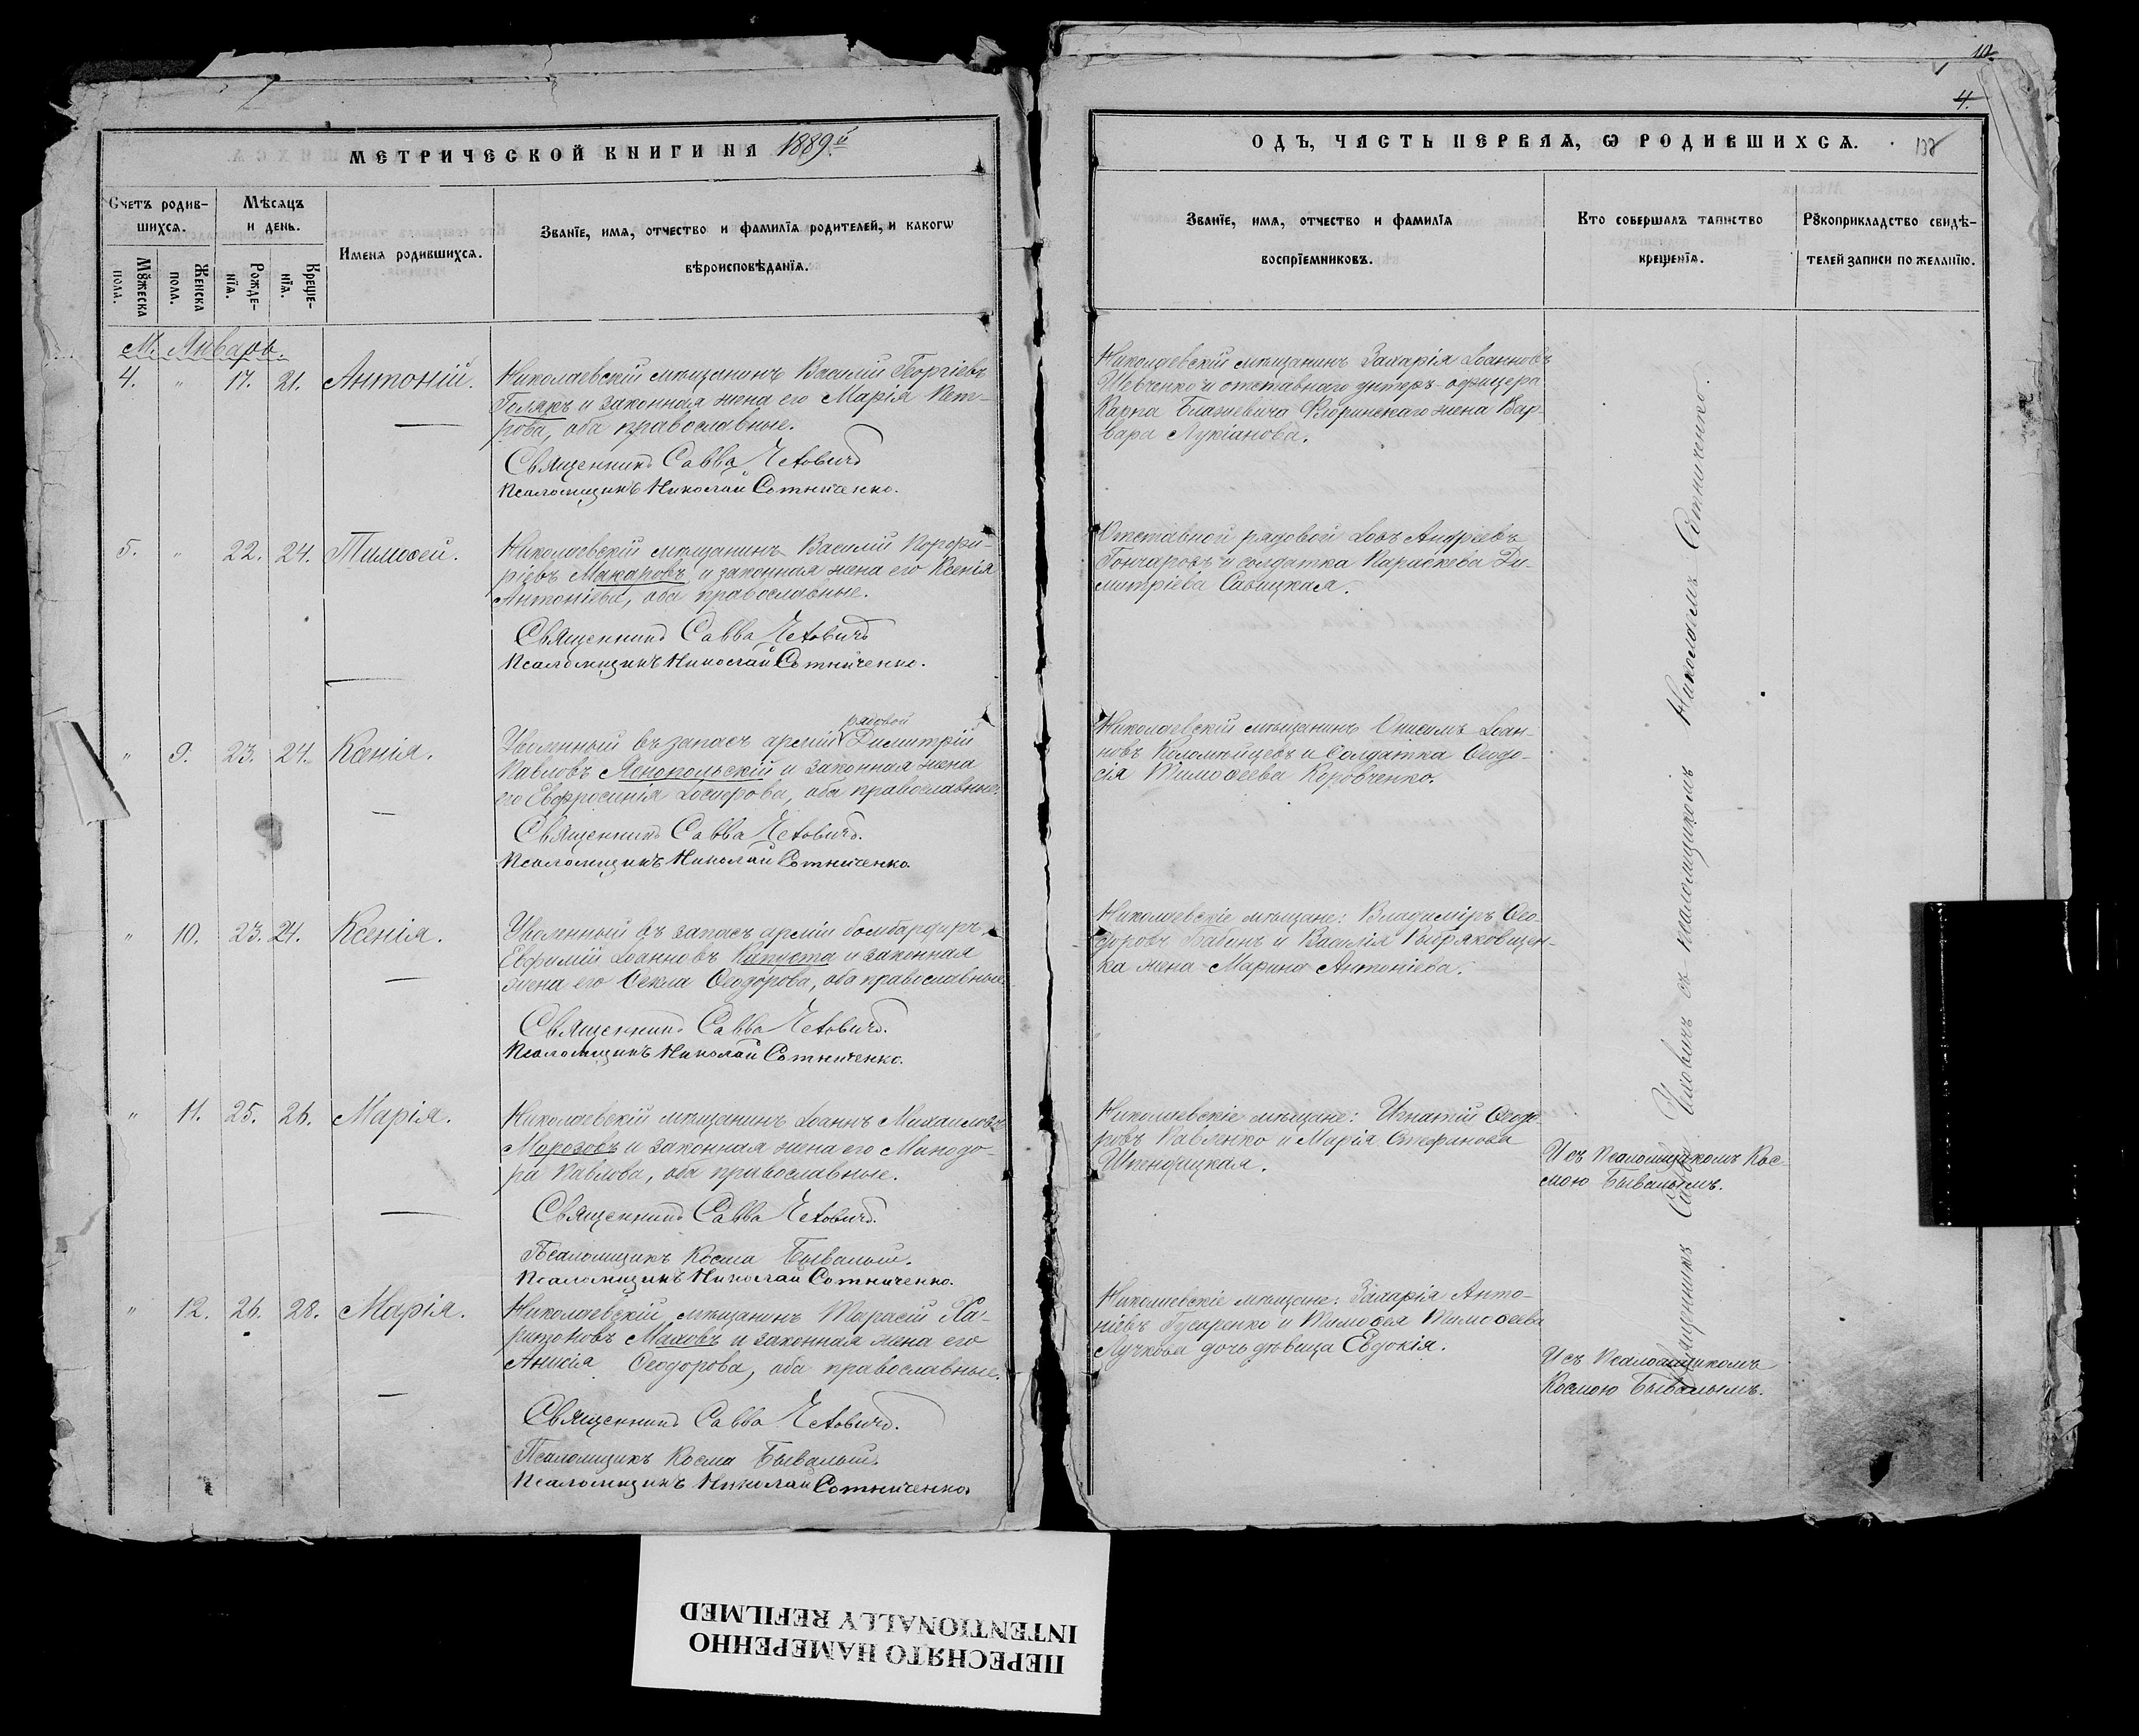 МЕТРИЧЕСКОЙ КНИГИ НА 1889й
Счетъ родив-
шихся.
Мѣсяцъ
и день.
Имена родившихся.
Званїе, имя, отчество и фамилїя родителей, и какогѡ
вѣроисповѣданїя.
Мꙋжеска
пола.
Женска
пола.
Рожде-
нїя.
Креще-
нїя.
М. Январь.
4. " 17. 21. Антоній. Николаевскій мѣщанинъ Василій Георгіевъ
Голякъ и законная жена его Марія Пет-
рова, оба православные.
Священникъ Савва
Псаломщикъ Николай Сотниченко.
5. " 22. 24. Тимоѳей. Николаевскій мѣщанинъ Василій Порфи-
ріевъ Макаровъ и законная жена его Ксенія
Антоніева, оба православные.
Священникъ Савва
Псаломщикъ Николай Сотниченко.
рядовой
" 9. 23. 24. Ксенія. Уволенный въ запасъ арміи Димитрій
Павловъ Яснопольскій и законная жена
его Евфросинія Іосифова, оба православные.
Священникъ Савва
Псаломщикъ Николай Сотниченко.
" 10. 23. 24. Ксенія. Уволенный въ запасъ арміи бомбардиръ
Евфимій Іоанновъ Капуста и законная
жена его Ѳекла Ѳеодорова, оба православные.
Священникъ Савва
Псаломщикъ Николай Сотниченко.
" 11. 25. 26. Марія. Николаевскій мѣщанинъ Іоаннъ Михаиловъ
Морозовъ и законная жена его Минодо-
ра Павлова, оба православные.
Священникъ Савва
Псаломщикъ Косма Бывалый.
Псаломщикъ Николай Сотниченко.
" 12. 26. 28. Марія. Николаевскій мѣщанинъ Тарасій Ха-
ритоновъ Маховъ и законная жена его
Анисія Ѳеодорова, оба православные.
Священникъ Савва
Псаломщикъ Косма Бывалый.
Псаломщикъ Николай Сотниченко.
4.
ОДЪ, ЧАСТЬ ПЕРВАЯ, Ѡ РОДИВШИХСЯ.
Званїе, имя, отчество и фамилїя
воспрїемниковъ.
Кто совершалъ таинство
крещенїя.
Рꙋкоприкладство свидѣ-
телей записи по желанїю.
Николаевскій мѣщанинъ Захарія Іоанновъ
Шевченко и отставнаго унтеръ-офицера
Карпа Блажевича жена Вар-
вара Лукіанова.
Отставной рядовой Іовъ Андреевъ
Гончаровъ и солдатка Параскева Ди-
митріева Савицкая.
Николаевскій мѣщанинъ Онисимъ Іоан-
новъ Коломѣйцевъ и Солдатка Ѳеодо-
сія Тимоѳеева Коровченко.
Николаевскіе мѣщане: Владиміръ Ѳео-
доровъ Бабанъ и Василія
ка жена Марина Антоніева.
Николаевскіе мѣщане: Игнатій Ѳеодо-
ровъ Павленко и Марія Стефанова
Николаевскіе мѣщане: Захарія Анто-
ніевъ Гусаренко и Тимоѳея Тимоѳеева
Лучкова дочь дѣвица Евдокія.
Священникъ Савва съ псаломщикомъ Николаемъ Сотниченко.
И съ Псаломщикомъ Кос-
мою Бывалымъ.
И съ Псаломщикомъ
Космою Бывалымъ.
ПЕРЕСНЯТО НАМЕРЕННО
INTENTIONALLY REFILMED